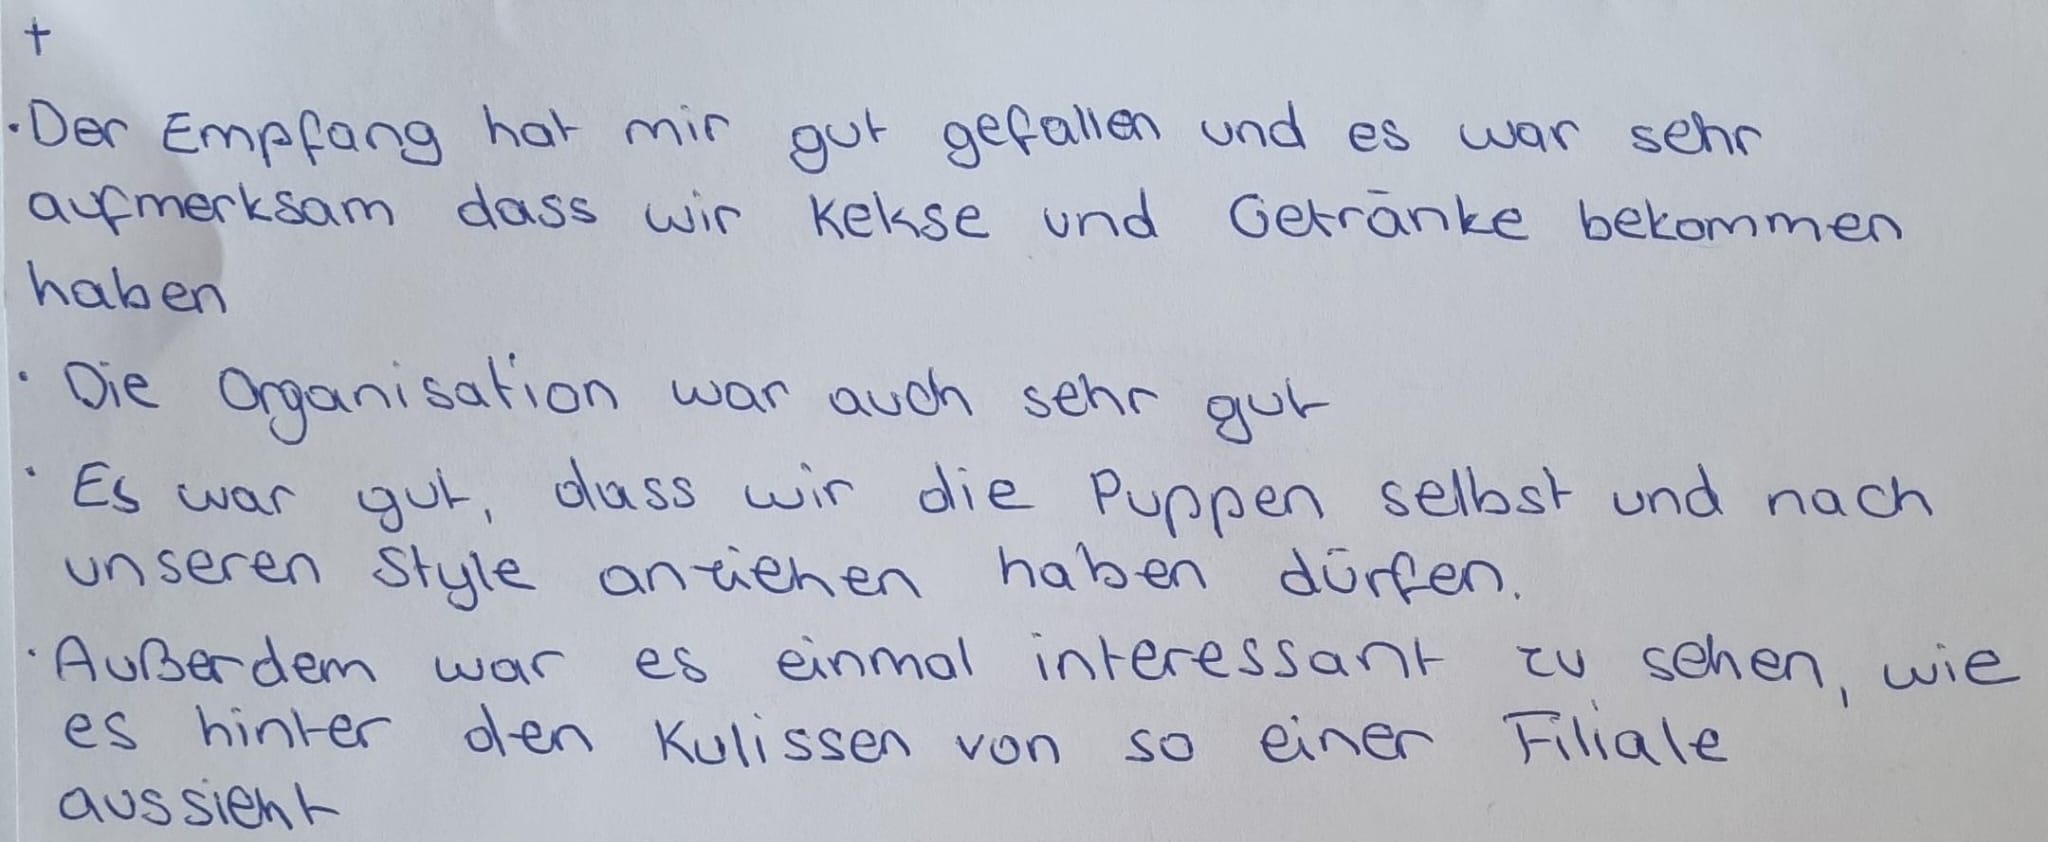 +
·Der Empfang hat mir gut gefallen und es war sehr
aufmerksam dass wir Kekse und Getränke bekommen
haben
· Die Organisation war auch sehr gut
· Es war gut, dass wir die Puppen selbst und nach
unseren Style anziehen haben dürfen.
· Außerdem war es einmal interessant zu sehen, wie
es hinter den Kulissen von so einer Filiale
aussieht